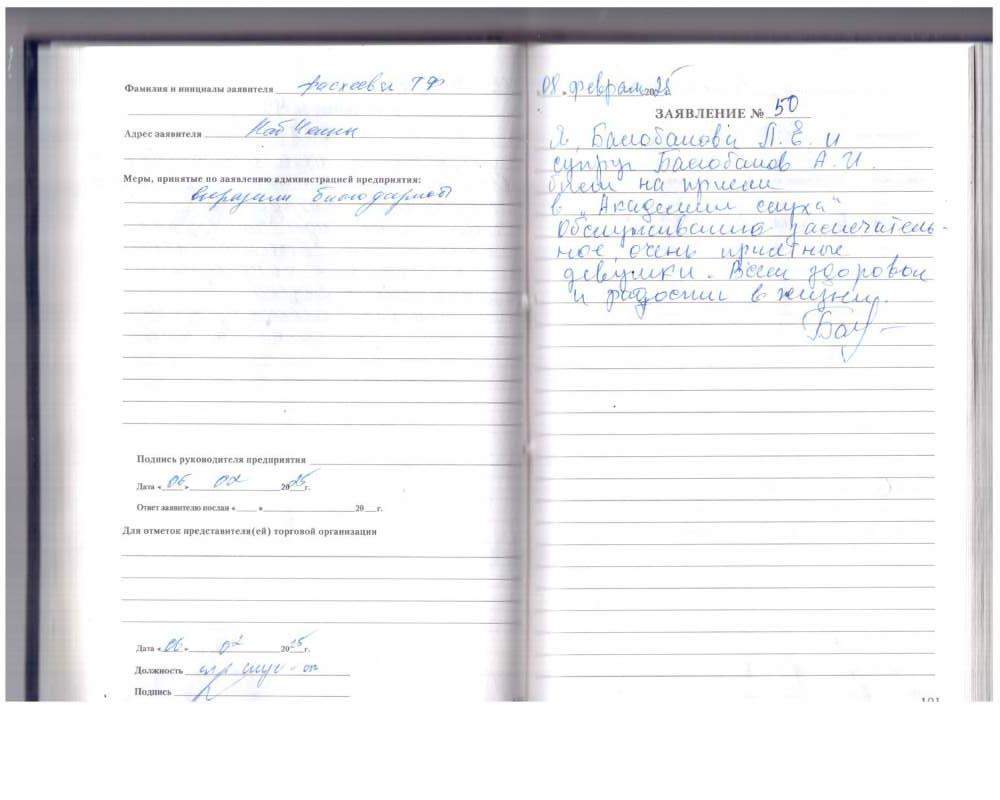 Фамилия и инициалы заявителя Т Ф
Адрес заявителя Наб Челны
Меры, принятые по заявлению администрацией предприятия:
выразили благодарность
Подпись руководителя предприятия
Дата « 06 » 02 2025 г.
Ответ заявителю послан « » 20 г.
Для отметок представителя(ей) торговой организации
Дата « 06 » 02 2025 г.
Должность
Подпись
08 » февраля 2025
ЗАЯВЛЕНИЕ № 50
Я, Балобанова Л. Е. и
супруг Балобанов А. И.
были на приеме
в „Академии слуха“
Обслуживание замечатель-
ное, очень приятные
девушки. Всем здоровья
и радости в жизни.
101